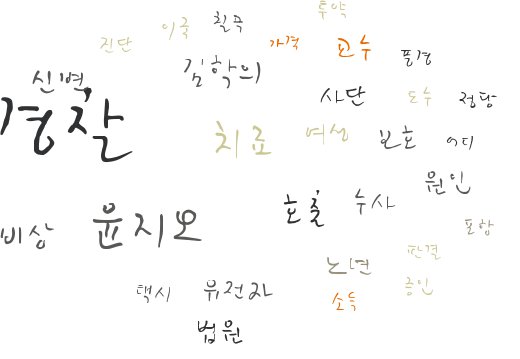 투약
이국 칠곡
진단 가격 고수 풍경
김학의
신변
경찰 사단 도수 정당
치료 여성 보호 어디
원인
호출 수사
비상 윤지오 포함
판결
노년
택시 유전자 소득 증인
법원